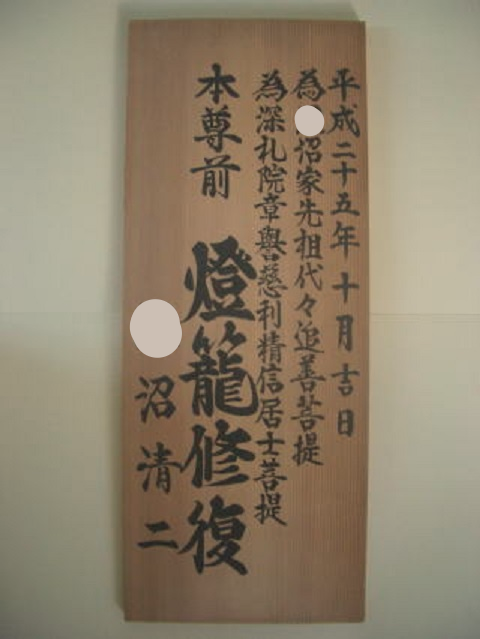 平成二十五年十月吉日
為沼家先祖代々追善菩提
為深礼院章譽慈利精信居士菩提
本尊前 燈籠修復
沼清二